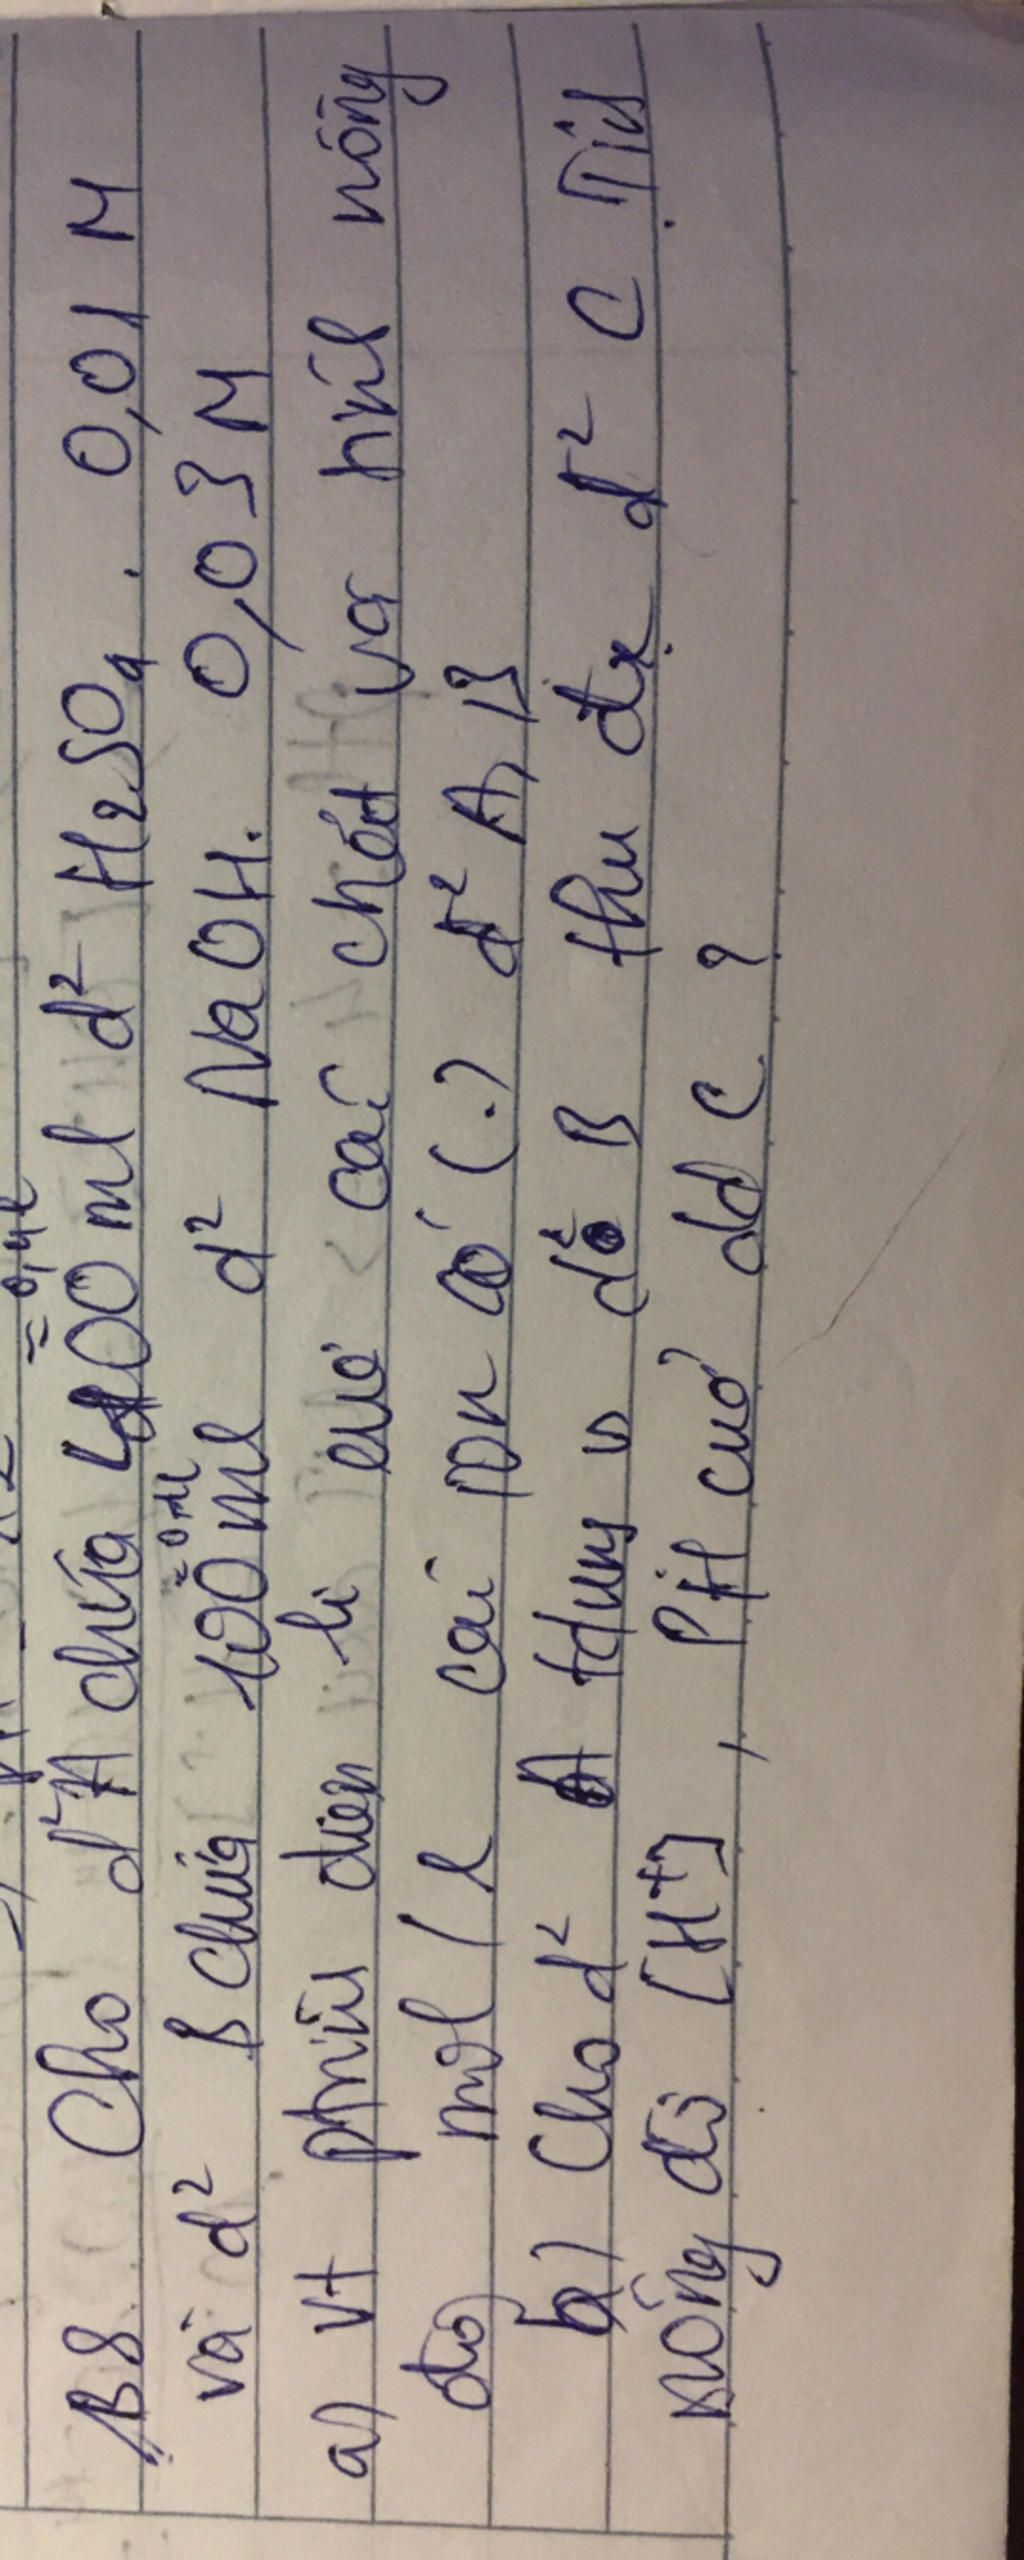 = 0,4l
B8 Cho d² A chứa 400 ml d² H₂SO₄. 0,01 M
= 0,1l
và d² B chứa 100 ml d² NaOH. 0,03 M
a) vt phtrìn điện li của các chất và tính nồng
độ mol / l các ion có (.) d² A, B
b) Cho d² A tdung v d² B thu đx d² C Tính
nồng độ [H⁺], PH của dd C ?